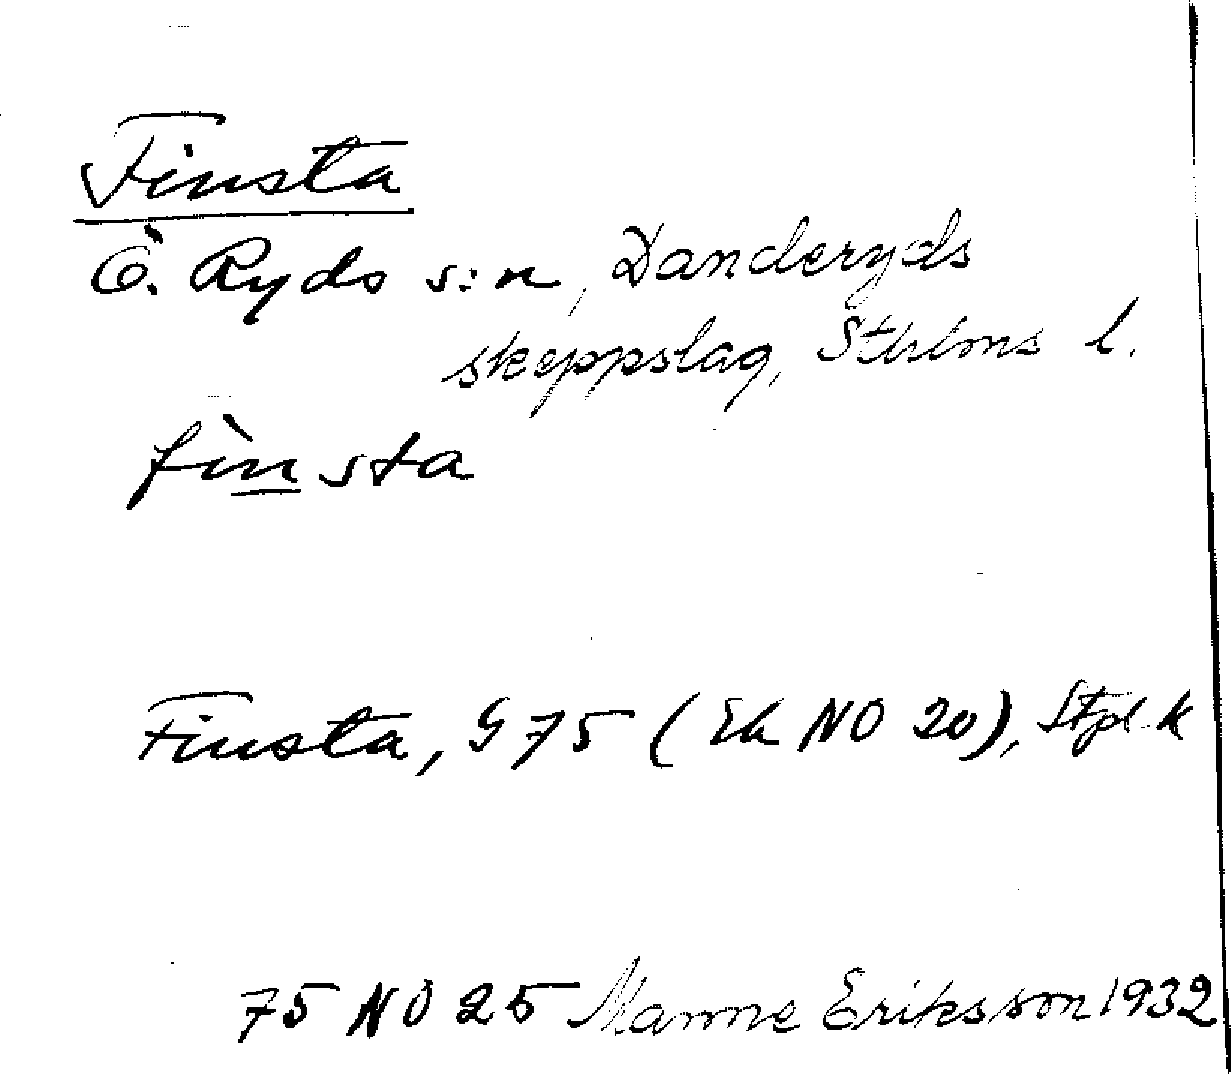 Finsta
Ö. Ryds s:n, Danderyds
skeppslag, Sthlms l.
fìnsta
Finsta, G 75 (Ek NO 20), Stpl. k
75 NO 25 Manne Eriksson 1932